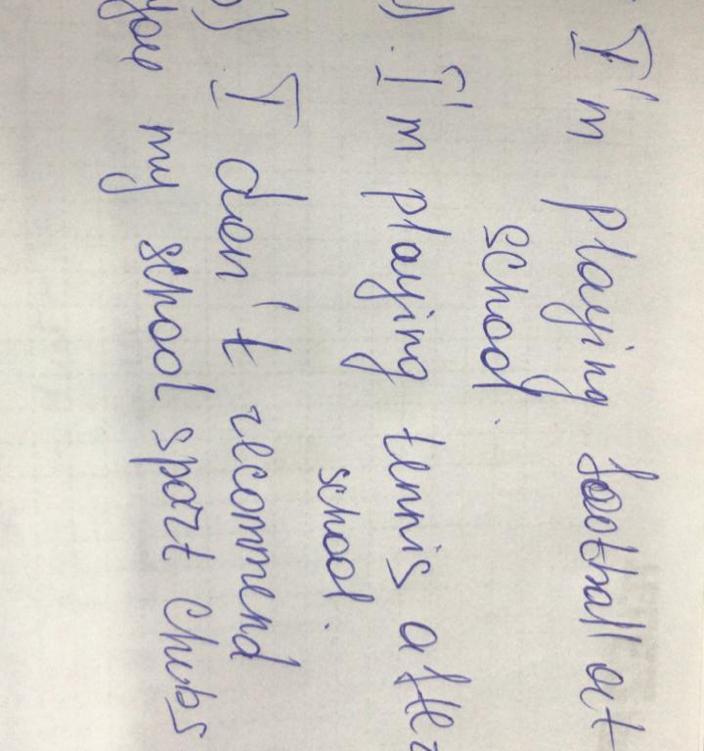 I'm playing football at
school.
). I'm playing tennis after
school.
) I don't recommend
you my school sport clubs